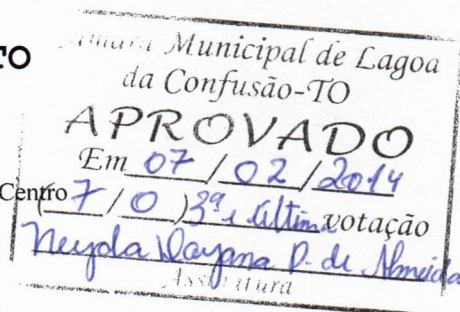 TO
Câmara Municipal de Lagoa
da Confusão-TO
APROVADO
Em 07 / 02 / 2014
Centro
(7 / 0) 3ª e última votação
Neyda Dayana P. de Almeida
Assinatura